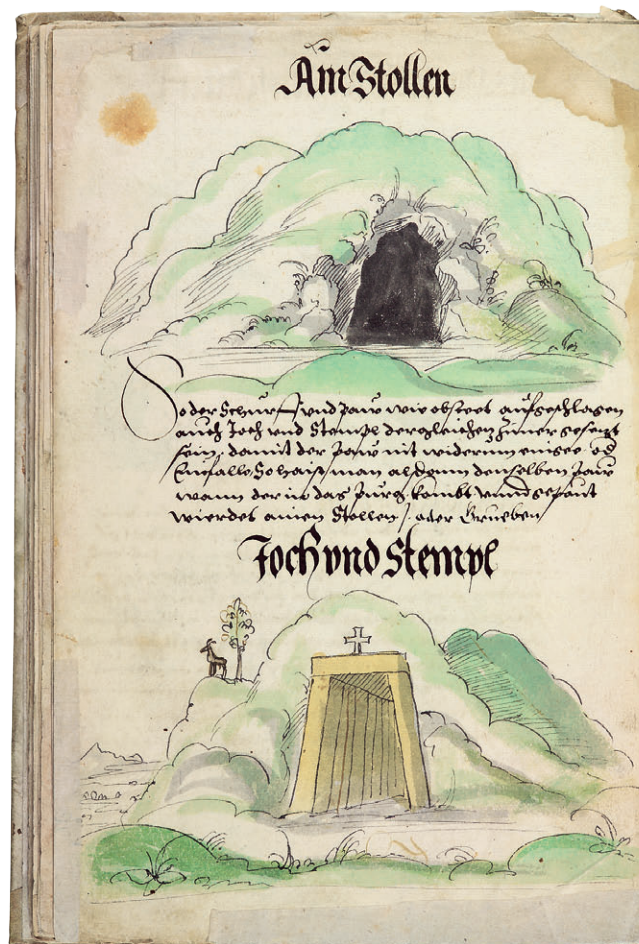 Ain Stollen
So der Schurf vnd paw wie obsteet aufgeschlagen
auch Joch vnd Stempl dergleichen Zimer gesetzt
sein, damit der paw nit widerumen
Einfalle So haist man alsdann denselben paw
wann der in das pürg kombt vnnd gepaut
wierdet ainen Stollen / oder Grueben
Joch vnd Stempl